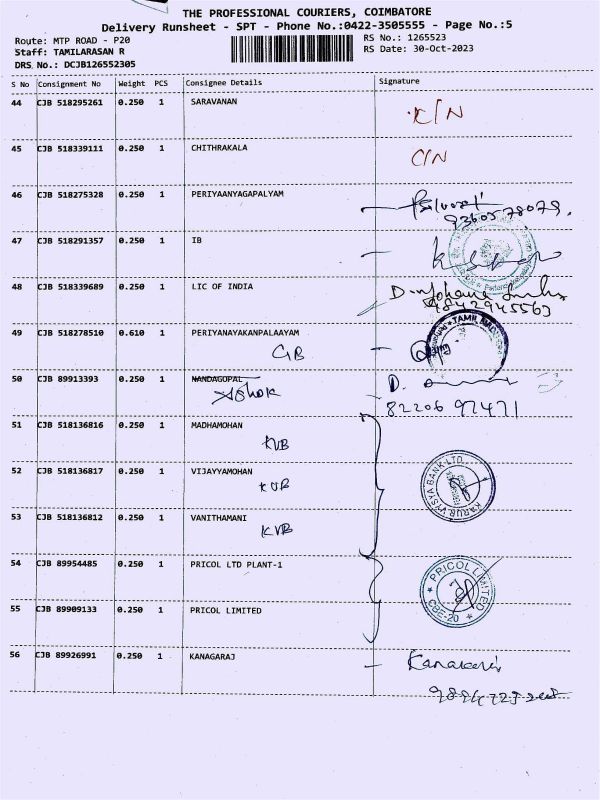 THE PROFESSIONAL COURIERS, COIMBATORE
Delivery Runsheet - SPT - Phone No.:0422-3505555 - Page No.:5
Route: MTP ROAD - P20
RS No.: 1265523
Staff: TAMILARASAN R
RS Date: 30-Oct-2023
DRS No.: DCJB126552305
S No Consignment No Weight PCS Consignee Details Signature
44 CJB 518295261 0.250 1 SARAVANAN C/N
45 CJB 518339111 0.250 1 CHITHRAKALA C/N
46 CJB 518275328 0.250 1 PERIYAANYAGAPALYAM
9360578079.
47 CJB 518291357 0.250 1 IB
48 CJB 518339689 0.250 1 LIC OF INDIA
9842945563
49 CJB 518278510 0.610 1 PERIYANAYAKANPALAAYAM
GB
TAMIL NADU
50 CJB 89913393 0.250 1 NANDAGOPAL D.
Ashok
82206 97471
51 CJB 518136816 0.250 1 MADHAMOHAN
KVB
52 CJB 518136817 0.250 1 VIJAYYAMOHAN
KVB
KARUR VYSYA BANK LTD.
53 CJB 518136812 0.250 1 VANITHAMANI
KVB
54 CJB 89954485 0.250 1 PRICOL LTD PLANT-1
PRICOL LIMITED
CBE-20
55 CJB 89909133 0.250 1 PRICOL LIMITED
56 CJB 89926991 0.250 1 KANAGARAJ